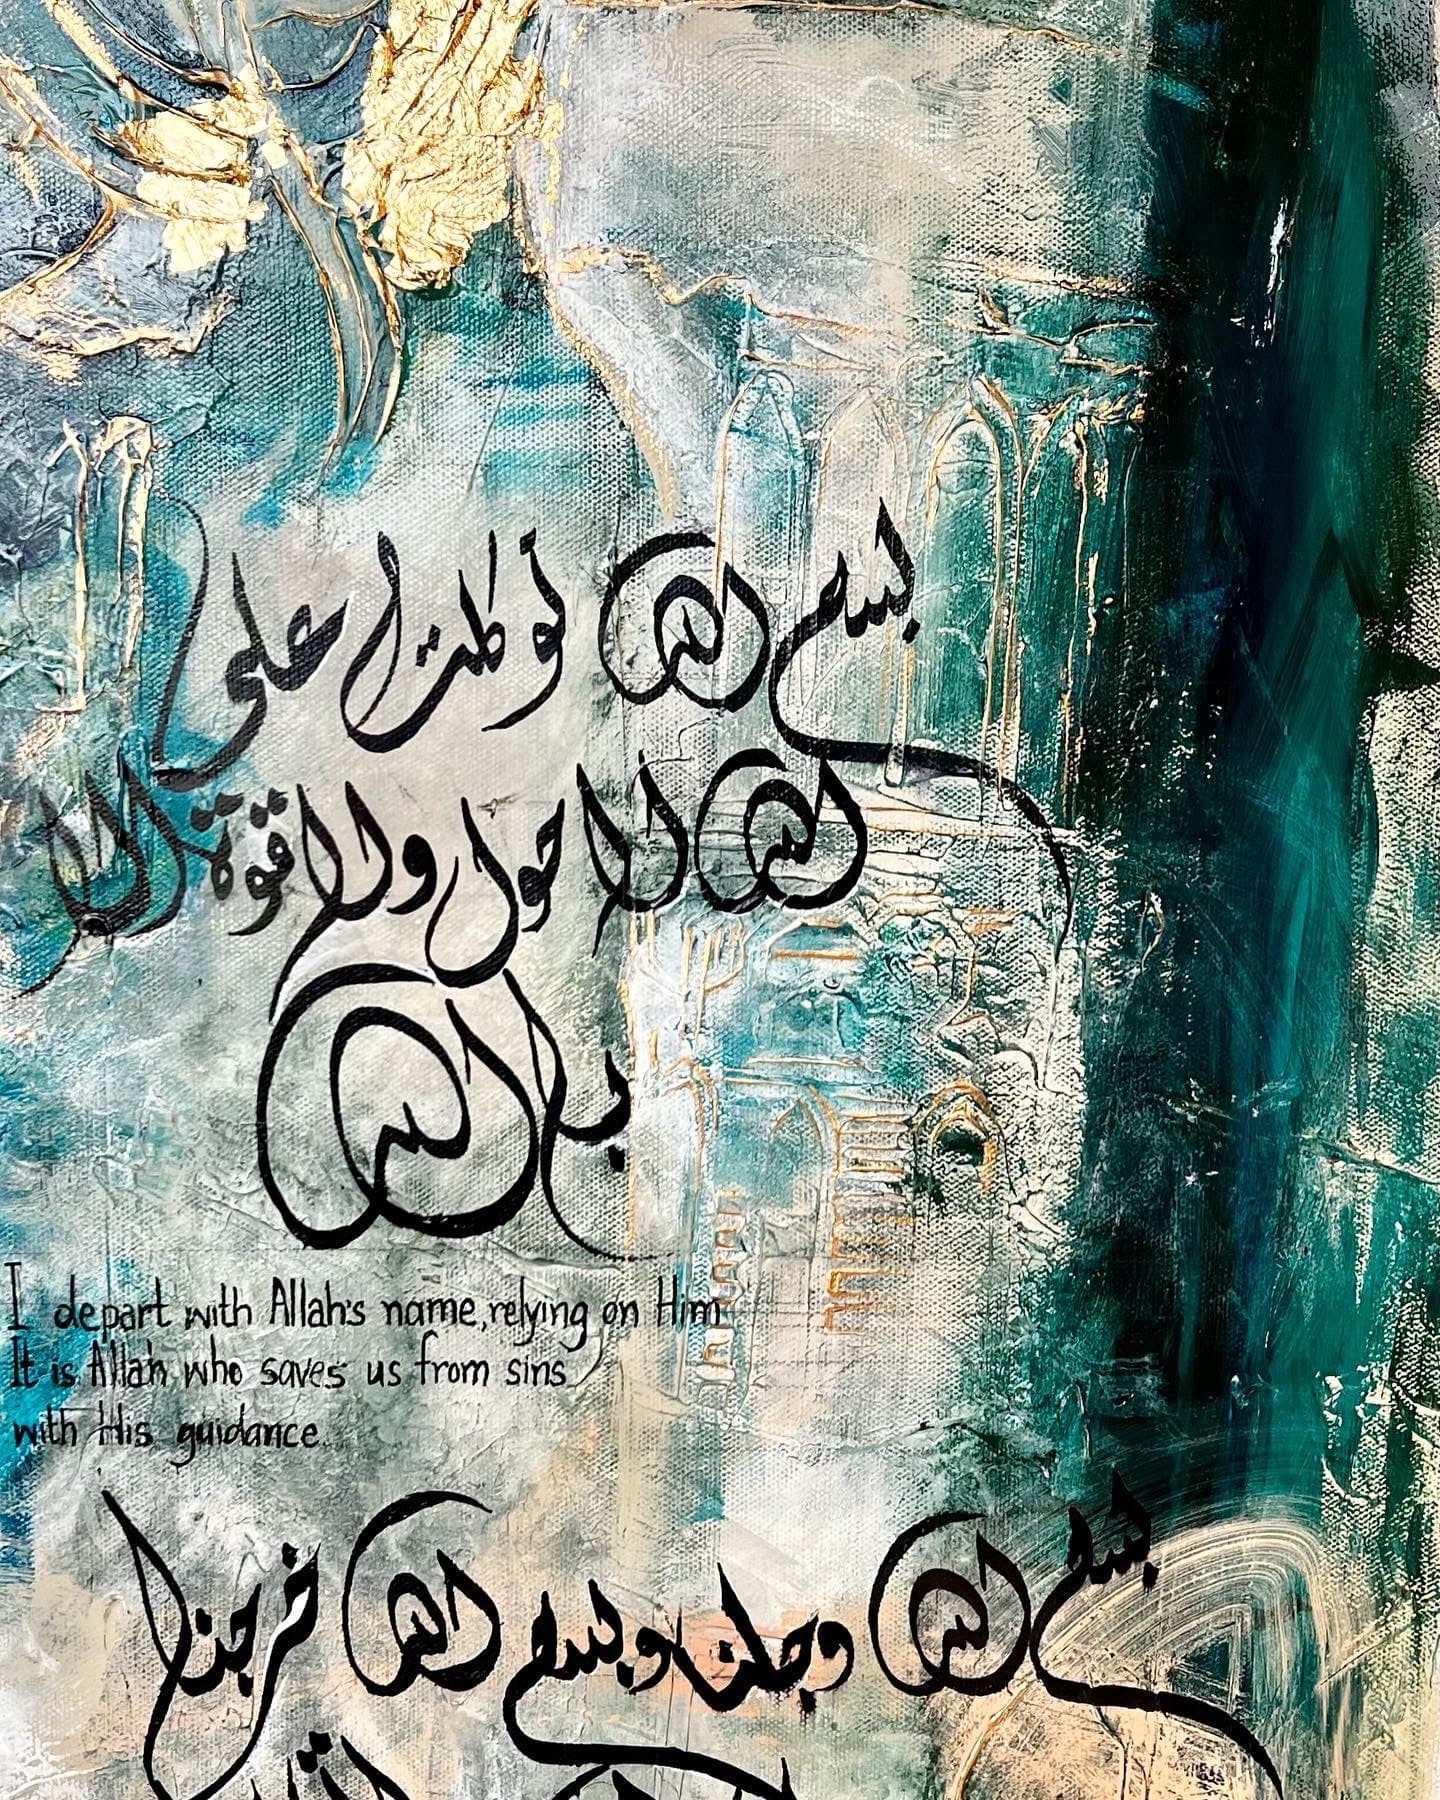 بسم الله توكلت على
الله لا حول ولا قوة الا
بالله
I depart with Allah's name, relying on Him
It is Allah who saves us from sins
with His guidance.
بسم الله ولجنا وبسم الله خرجنا